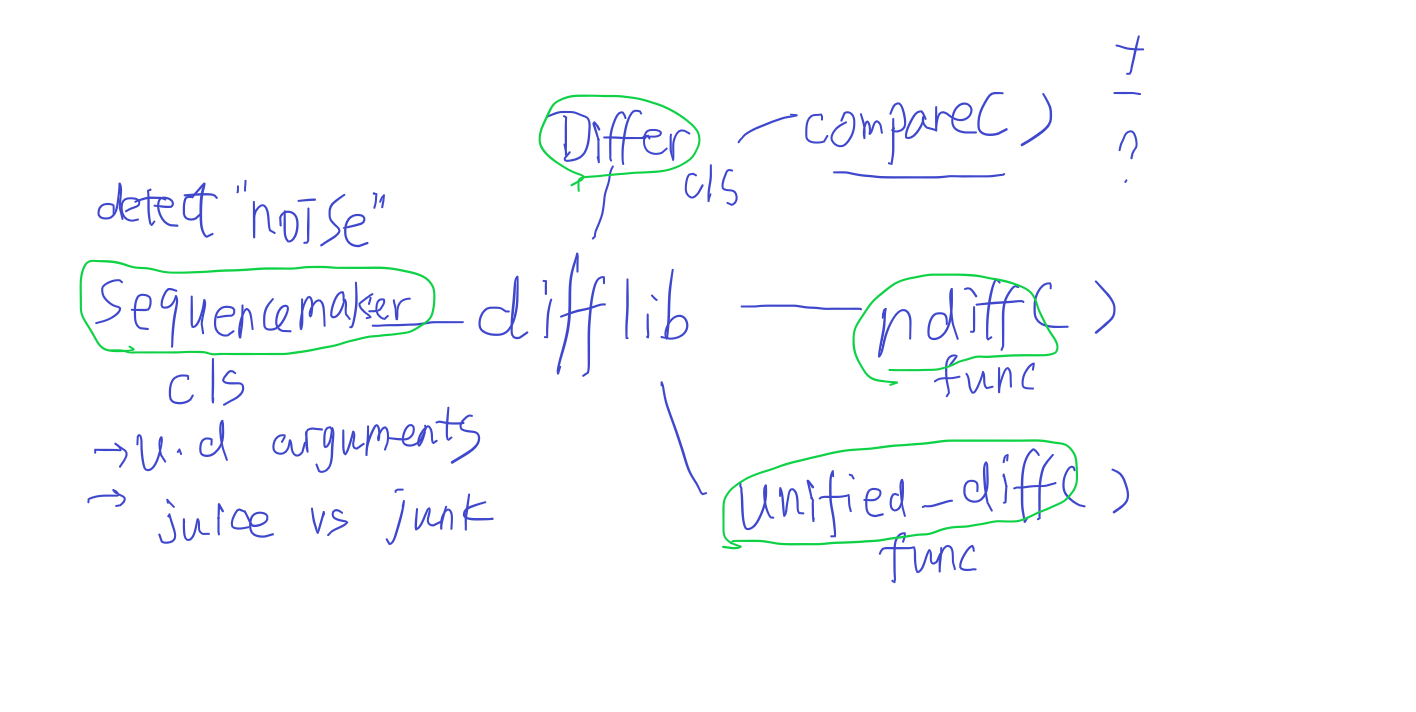 +
-
?
Differ
cls
compare()
detect "noise"
Sequencemaker
cls
→ u.d arguments
→ juice vs junk
difflib
ndiff()
func
unified_diff()
func